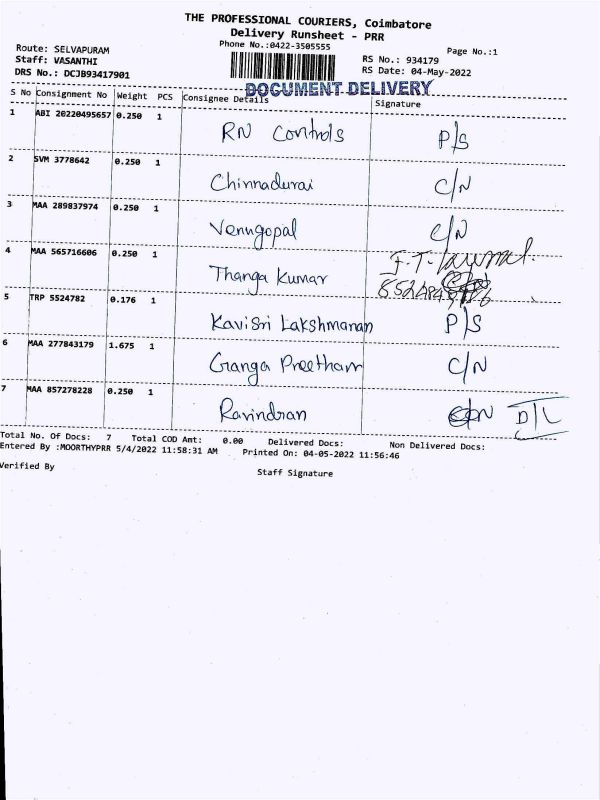 THE PROFESSIONAL COURIERS, Coimbatore
Delivery Runsheet - PRR
Phone No.:0422-3505555
Page No.:1
Route: SELVAPURAM
Staff: VASANTHI
DRS No.: DCJB93417901
RS No.: 934179
RS Date: 04-May-2022
DOCUMENT DELIVERY
S No Consignment No Weight PCS Consignee Details Signature
1 ABI 20220495657 0.250 1 RN Controls P/S
2 SVM 3778642 0.250 1 Chinnadurai C/N
3 MAA 289837974 0.250 1 Venugopal C/N
4 MAA 565716606 0.250 1 Thanga Kumar F.T.
5 TRP 5524782 0.176 1 KaviSri Lakshmanan P/S
6 MAA 277843179 1.675 1 Ganga Preetham C/N
7 MAA 857278228 0.250 1 Ravindran D/L
Total No. Of Docs: 7 Total COD Amt: 0.00 Delivered Docs: Non Delivered Docs:
Entered By :MOORTHYPRR 5/4/2022 11:58:31 AM Printed On: 04-05-2022 11:56:46
Verified By
Staff Signature